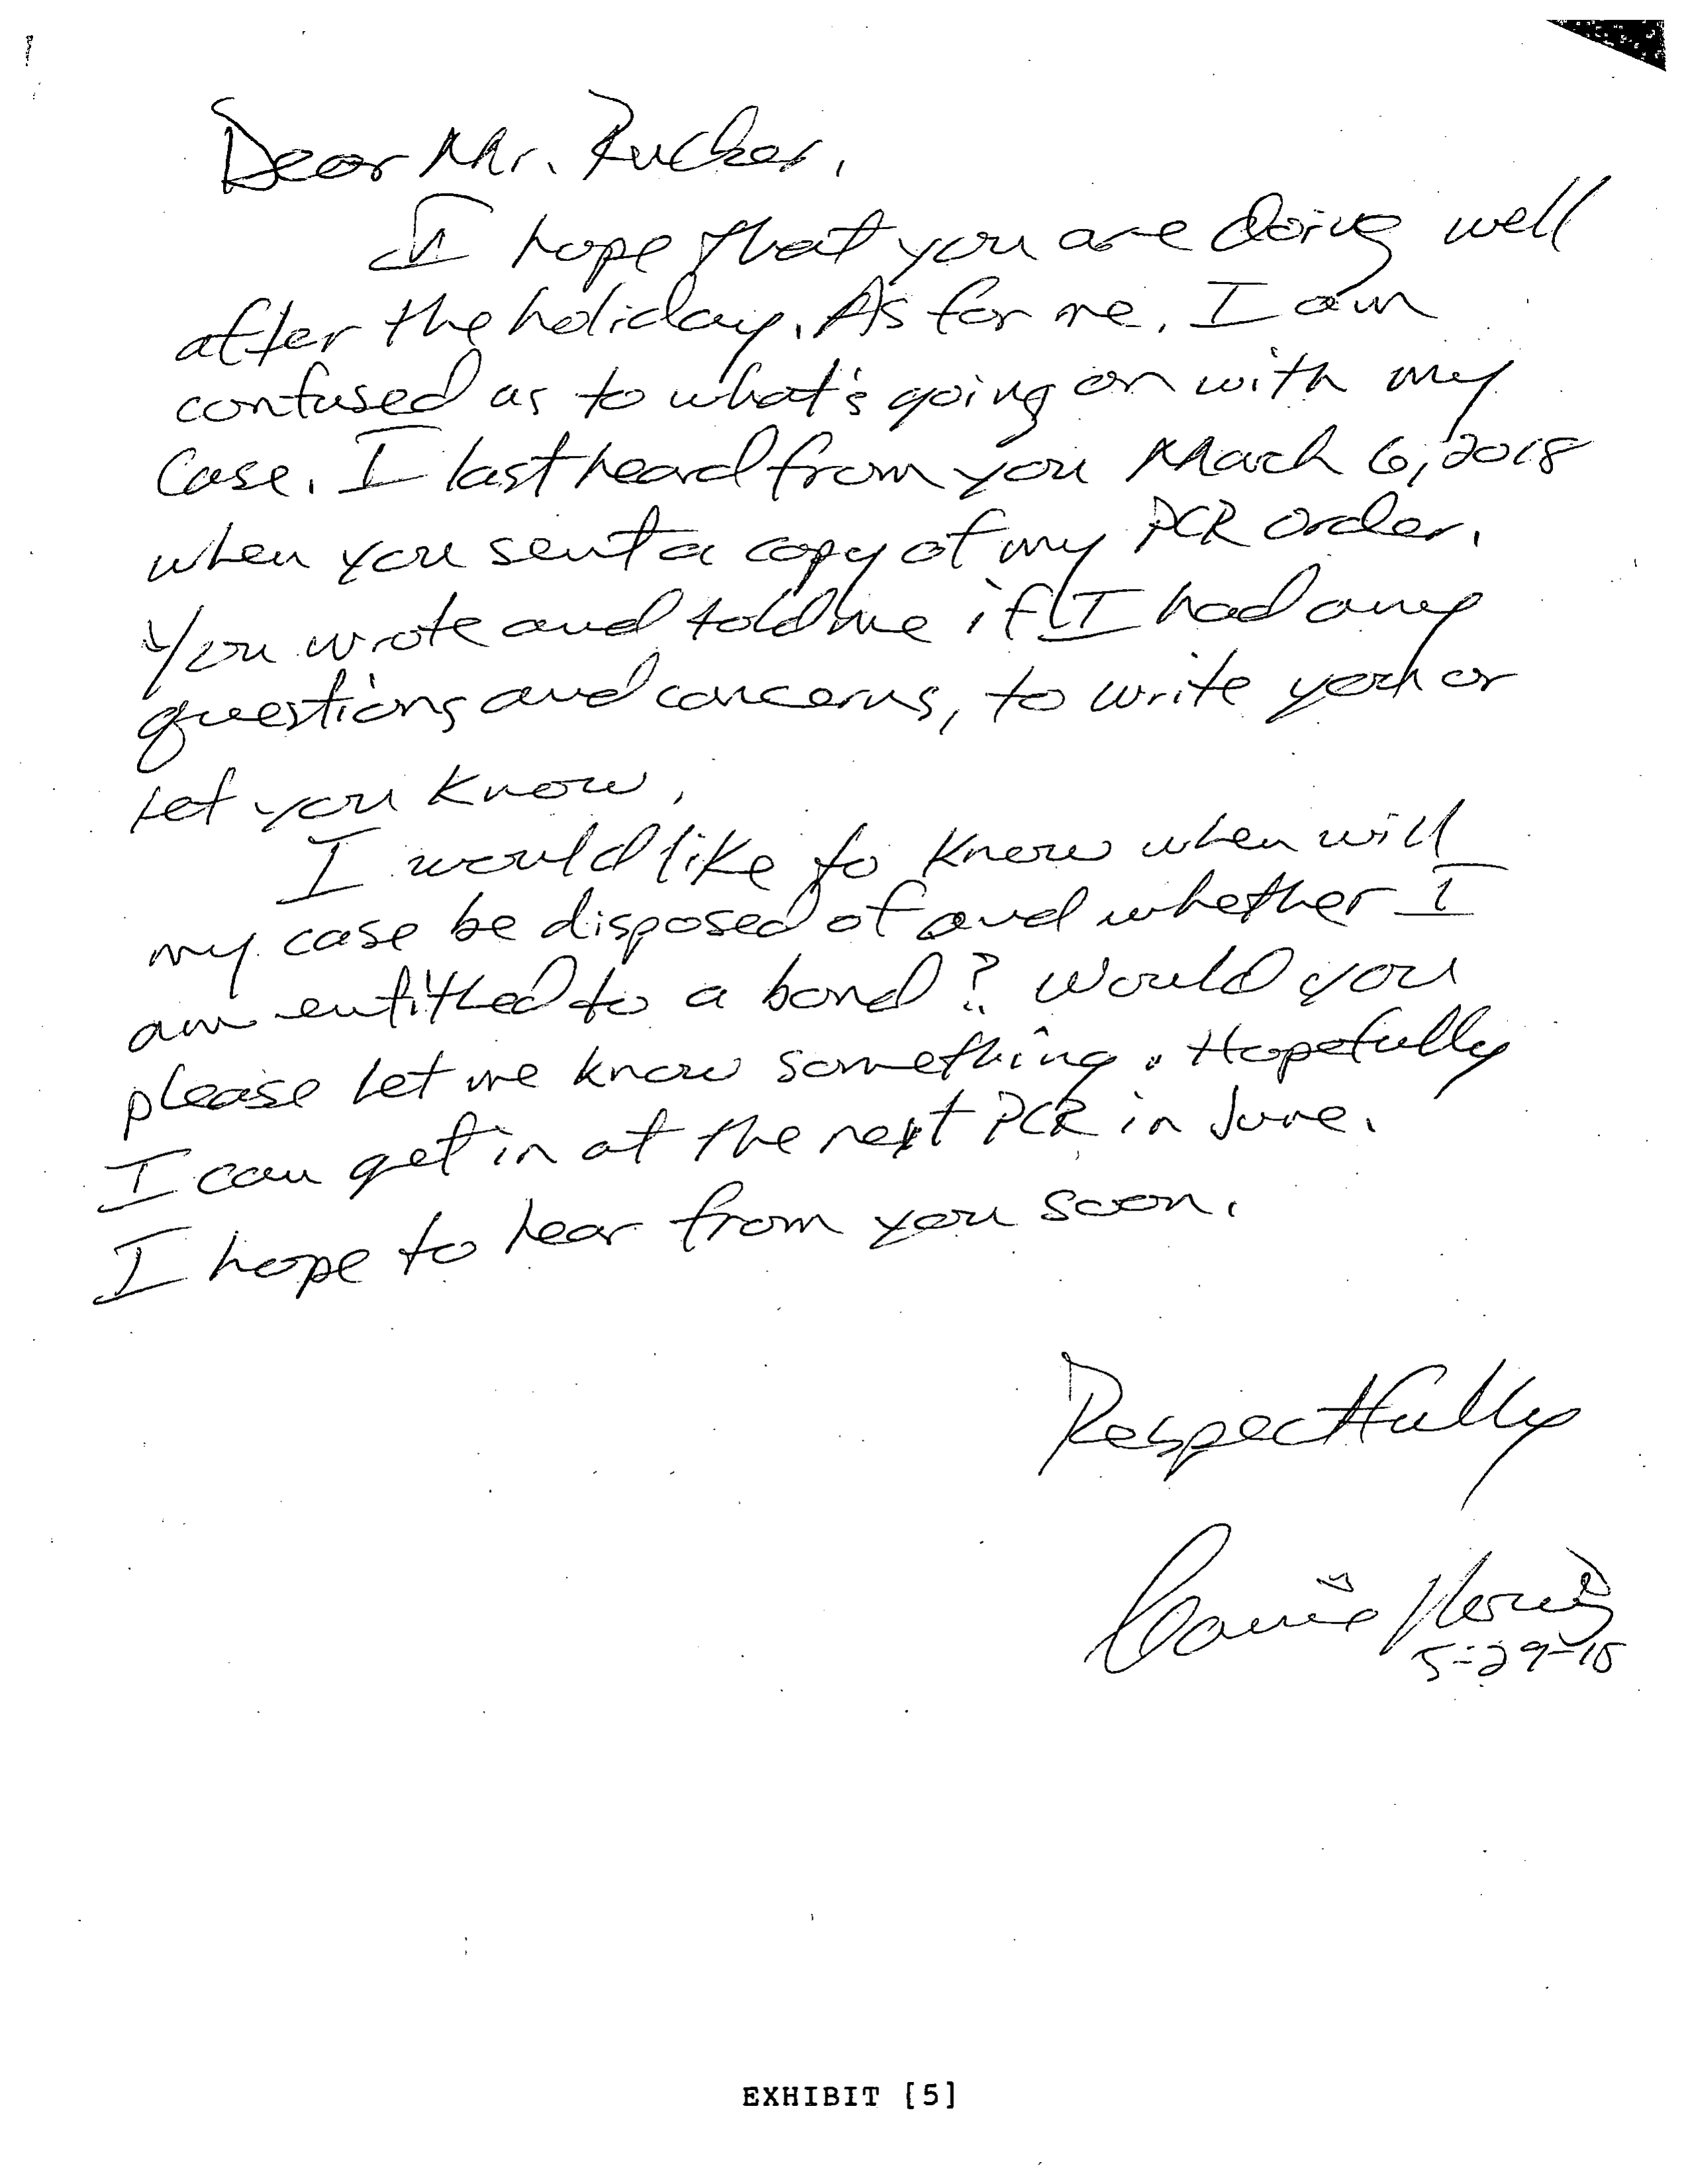 Dear Mr. Rucker,
I hope that you are doing well
after the holiday. As for me, I am
confused as to what's going on with my
Case. I last heard from you March 6, 2018
when you sent a copy of my PCR order.
You wrote and told me if I had any
questions and concerns, to write you or
let you know.
I would like to know when will
my case be disposed of and whether I
am entitled to a bond? Would you
please let me know something. Hopefully
I can get in at the next PCR in June.
I hope to hear from you soon.
Respectfully
5-29-18
EXHIBIT [5]